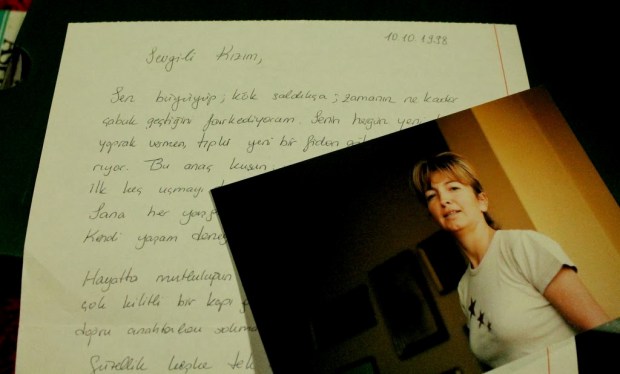 10.10.1998
Sevgili Kızım,
Sen büyüyüp; kök saldıkça; zamanın ne kadar
çabuk geçtiğini farkediyorum. Senin hergün yeni
yaprak vermen, tıpkı yeni bir fidan
Bu anaç kuşun
ilk kez uçmayı
Sana her
Kendi yaşam
Hayatta mutluluğun
çok kilitli bir kapı
doğru anahtarları
Güzellik